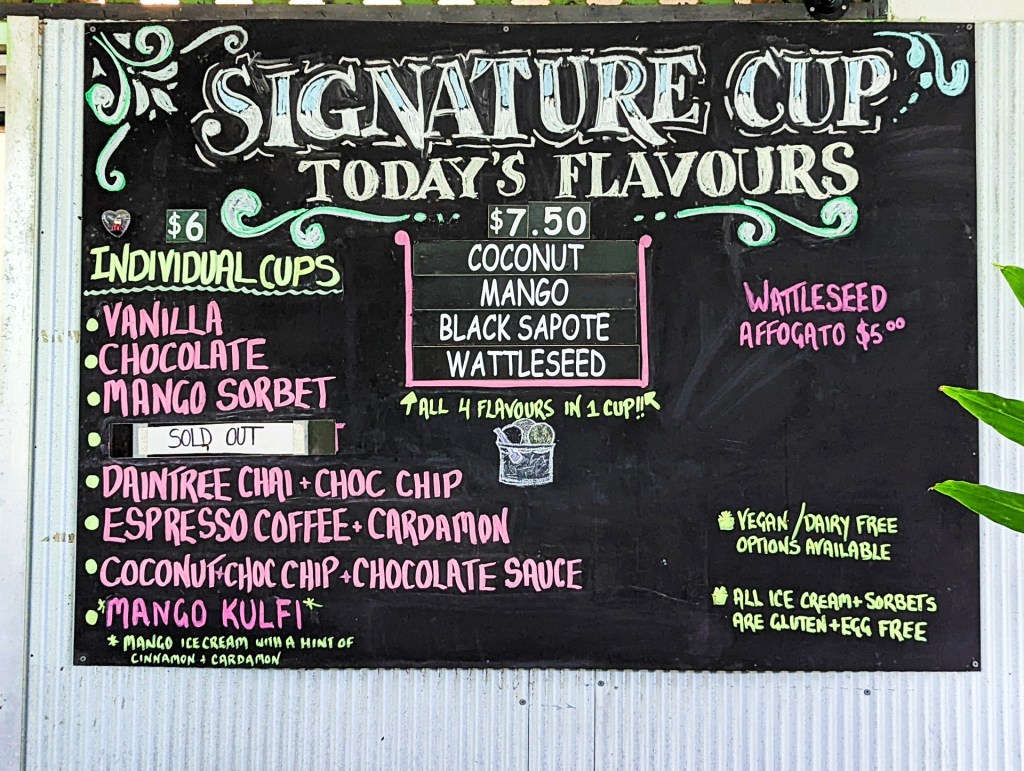 SIGNATURE CUP
TODAY'S FLAVOURS
$6
INDIVIDUAL CUPS
• VANILLA
• CHOCOLATE
• MANGO SORBET
• SOLD OUT
• DAINTREE CHAI + CHOC CHIP
• ESPRESSO COFFEE + CARDAMON
• COCONUT + CHOC CHIP + CHOCOLATE SAUCE
• *MANGO KULFI*
* MANGO ICE CREAM WITH A HINT OF
CINNAMON + CARDAMON
$7.50
COCONUT
MANGO
BLACK SAPOTE
WATTLESEED
↑ALL 4 FLAVOURS IN 1 CUP!!↖
WATTLESEED
AFFOGATO $5⁰⁰
VEGAN/DAIRY FREE
OPTIONS AVAILABLE
ALL ICE CREAM + SORBETS
ARE GLUTEN + EGG FREE